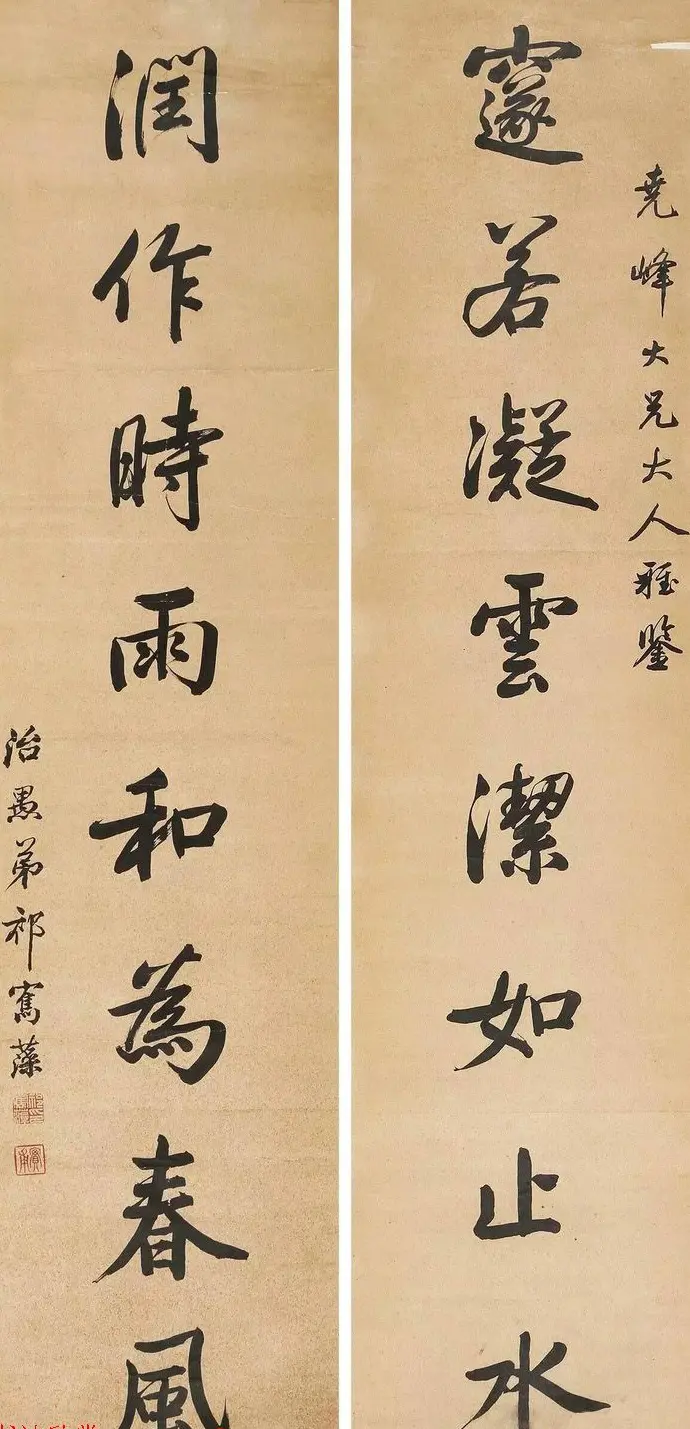 堯峰大兄大人雅鑒
邃若凝雲潔如止水
潤作時雨和為春風
治愚弟祁寯藻
實甫